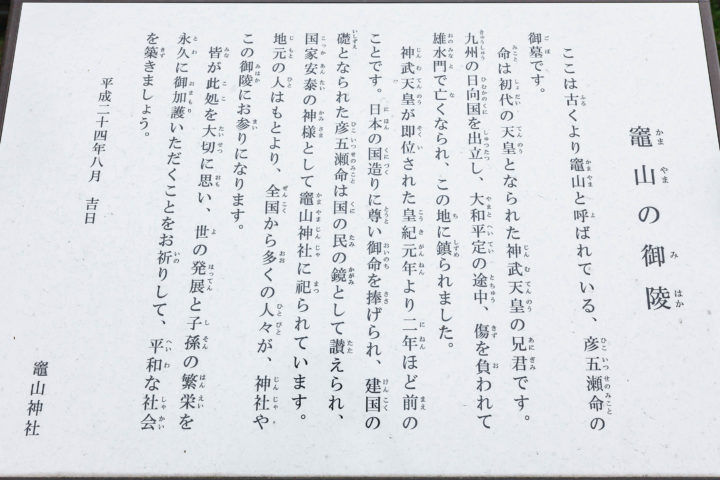 竈山の御陵
ここは古くより竈山と呼ばれている、彦五瀬命の
御墓です。
命は初代の天皇となられた神武天皇の兄君です。
九州の日向国を出立し、大和平定の途中、傷を負われて
雄水門で亡くなられ、この地に鎮られました。
神武天皇が即位された皇紀元年より二年ほど前の
ことです。日本の国造りに尊い御命を捧げられ、建国の
礎となられた彦五瀬命は国の民の鏡として讃えられ、
国家安泰の神様として竈山神社に祀られています。
地元の人はもとより、全国から多くの人々が、神社や
この御陵にお参りになります。
皆が此処を大切に思い、世の発展と子孫の繁栄を
永久に御加護いただくことをお祈りして、平和な社会
を築きましょう。
平成二十四年八月 吉日
竈山神社